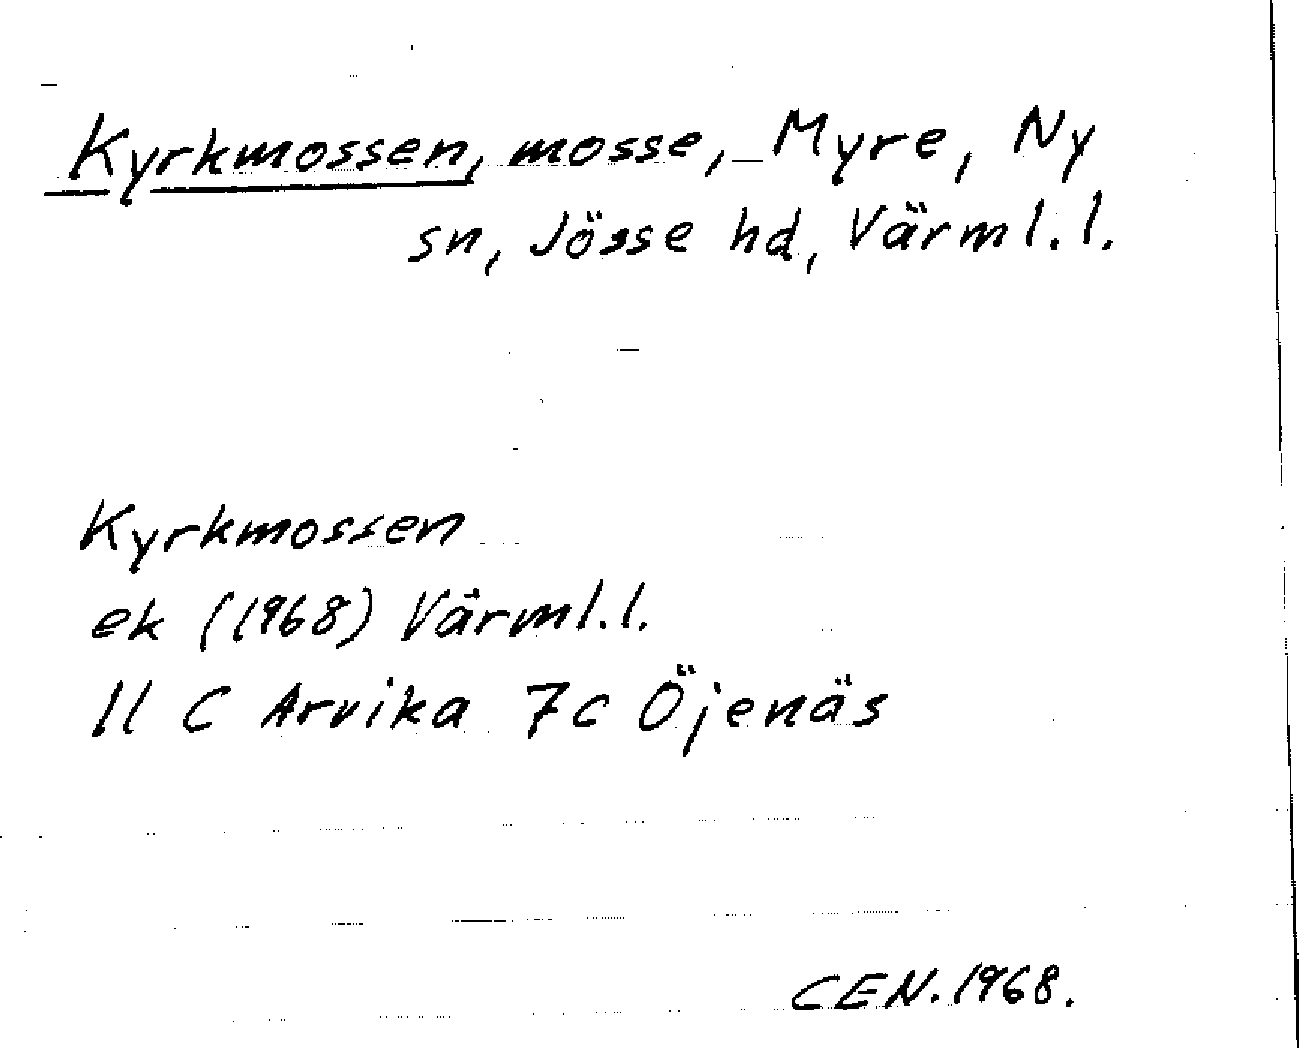 Kyrkmossen, mosse, Myre, Ny
sn, Jösse hd, Värml. l.
Kyrkmossen
ek (1968) Värml. l.
11 C Arvika 7c Öjenäs
CEN. 1968.